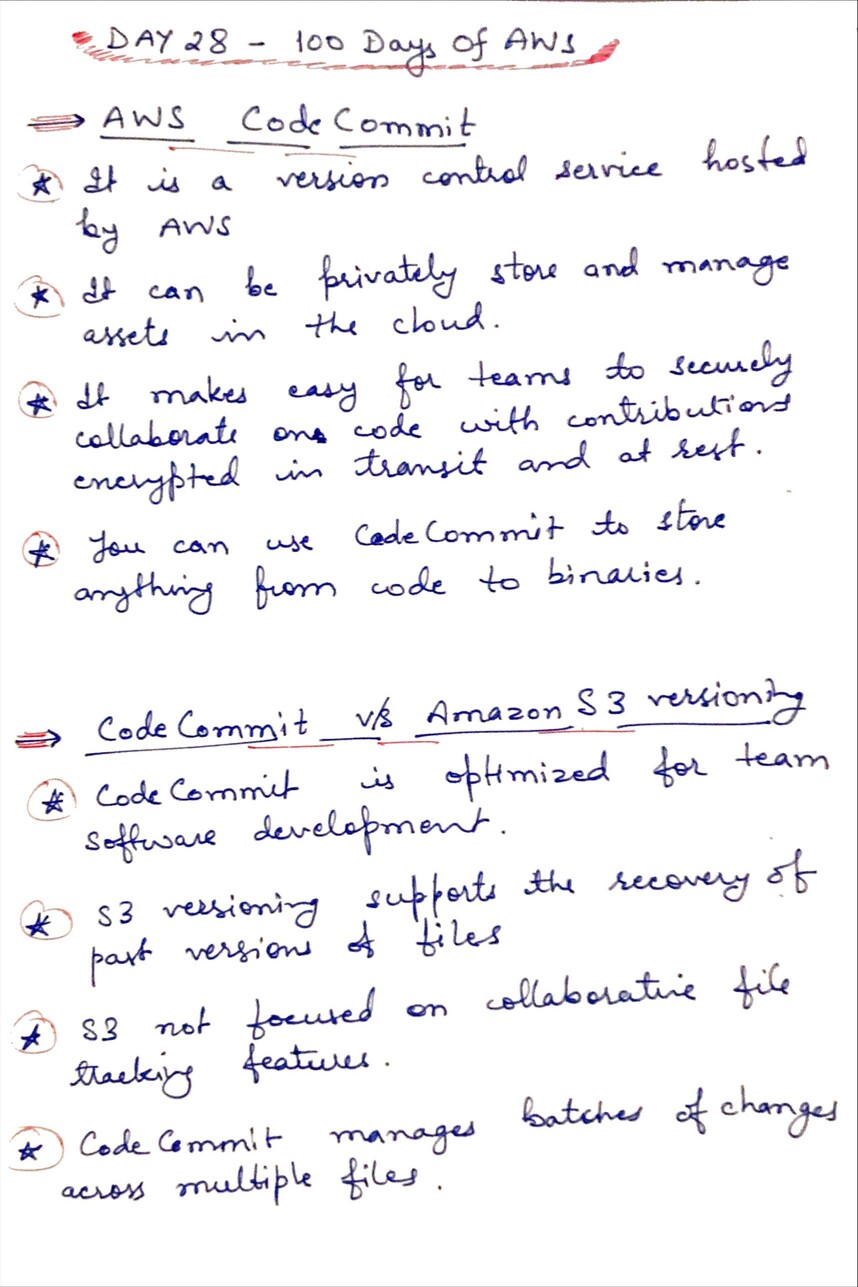 DAY 28 - 100 Days Of AWS
⇒ AWS CodeCommit
★ It is a version control service hosted
by AWS
★ It can be privately store and manage
assets in the cloud.
★ It makes easy for teams to securely
collaborate on code with contributions
encrypted in transit and at rest.
★ You can use CodeCommit to store
anything from code to binaries.
⇒ CodeCommit v/s Amazon S3 versioning
★ CodeCommit is optimized for team
software development.
★ S3 versioning supports the recovery of
past versions of files
★ S3 not focused on collaborative file
tracking features.
★ CodeCommit manages batches of changes
across multiple files.